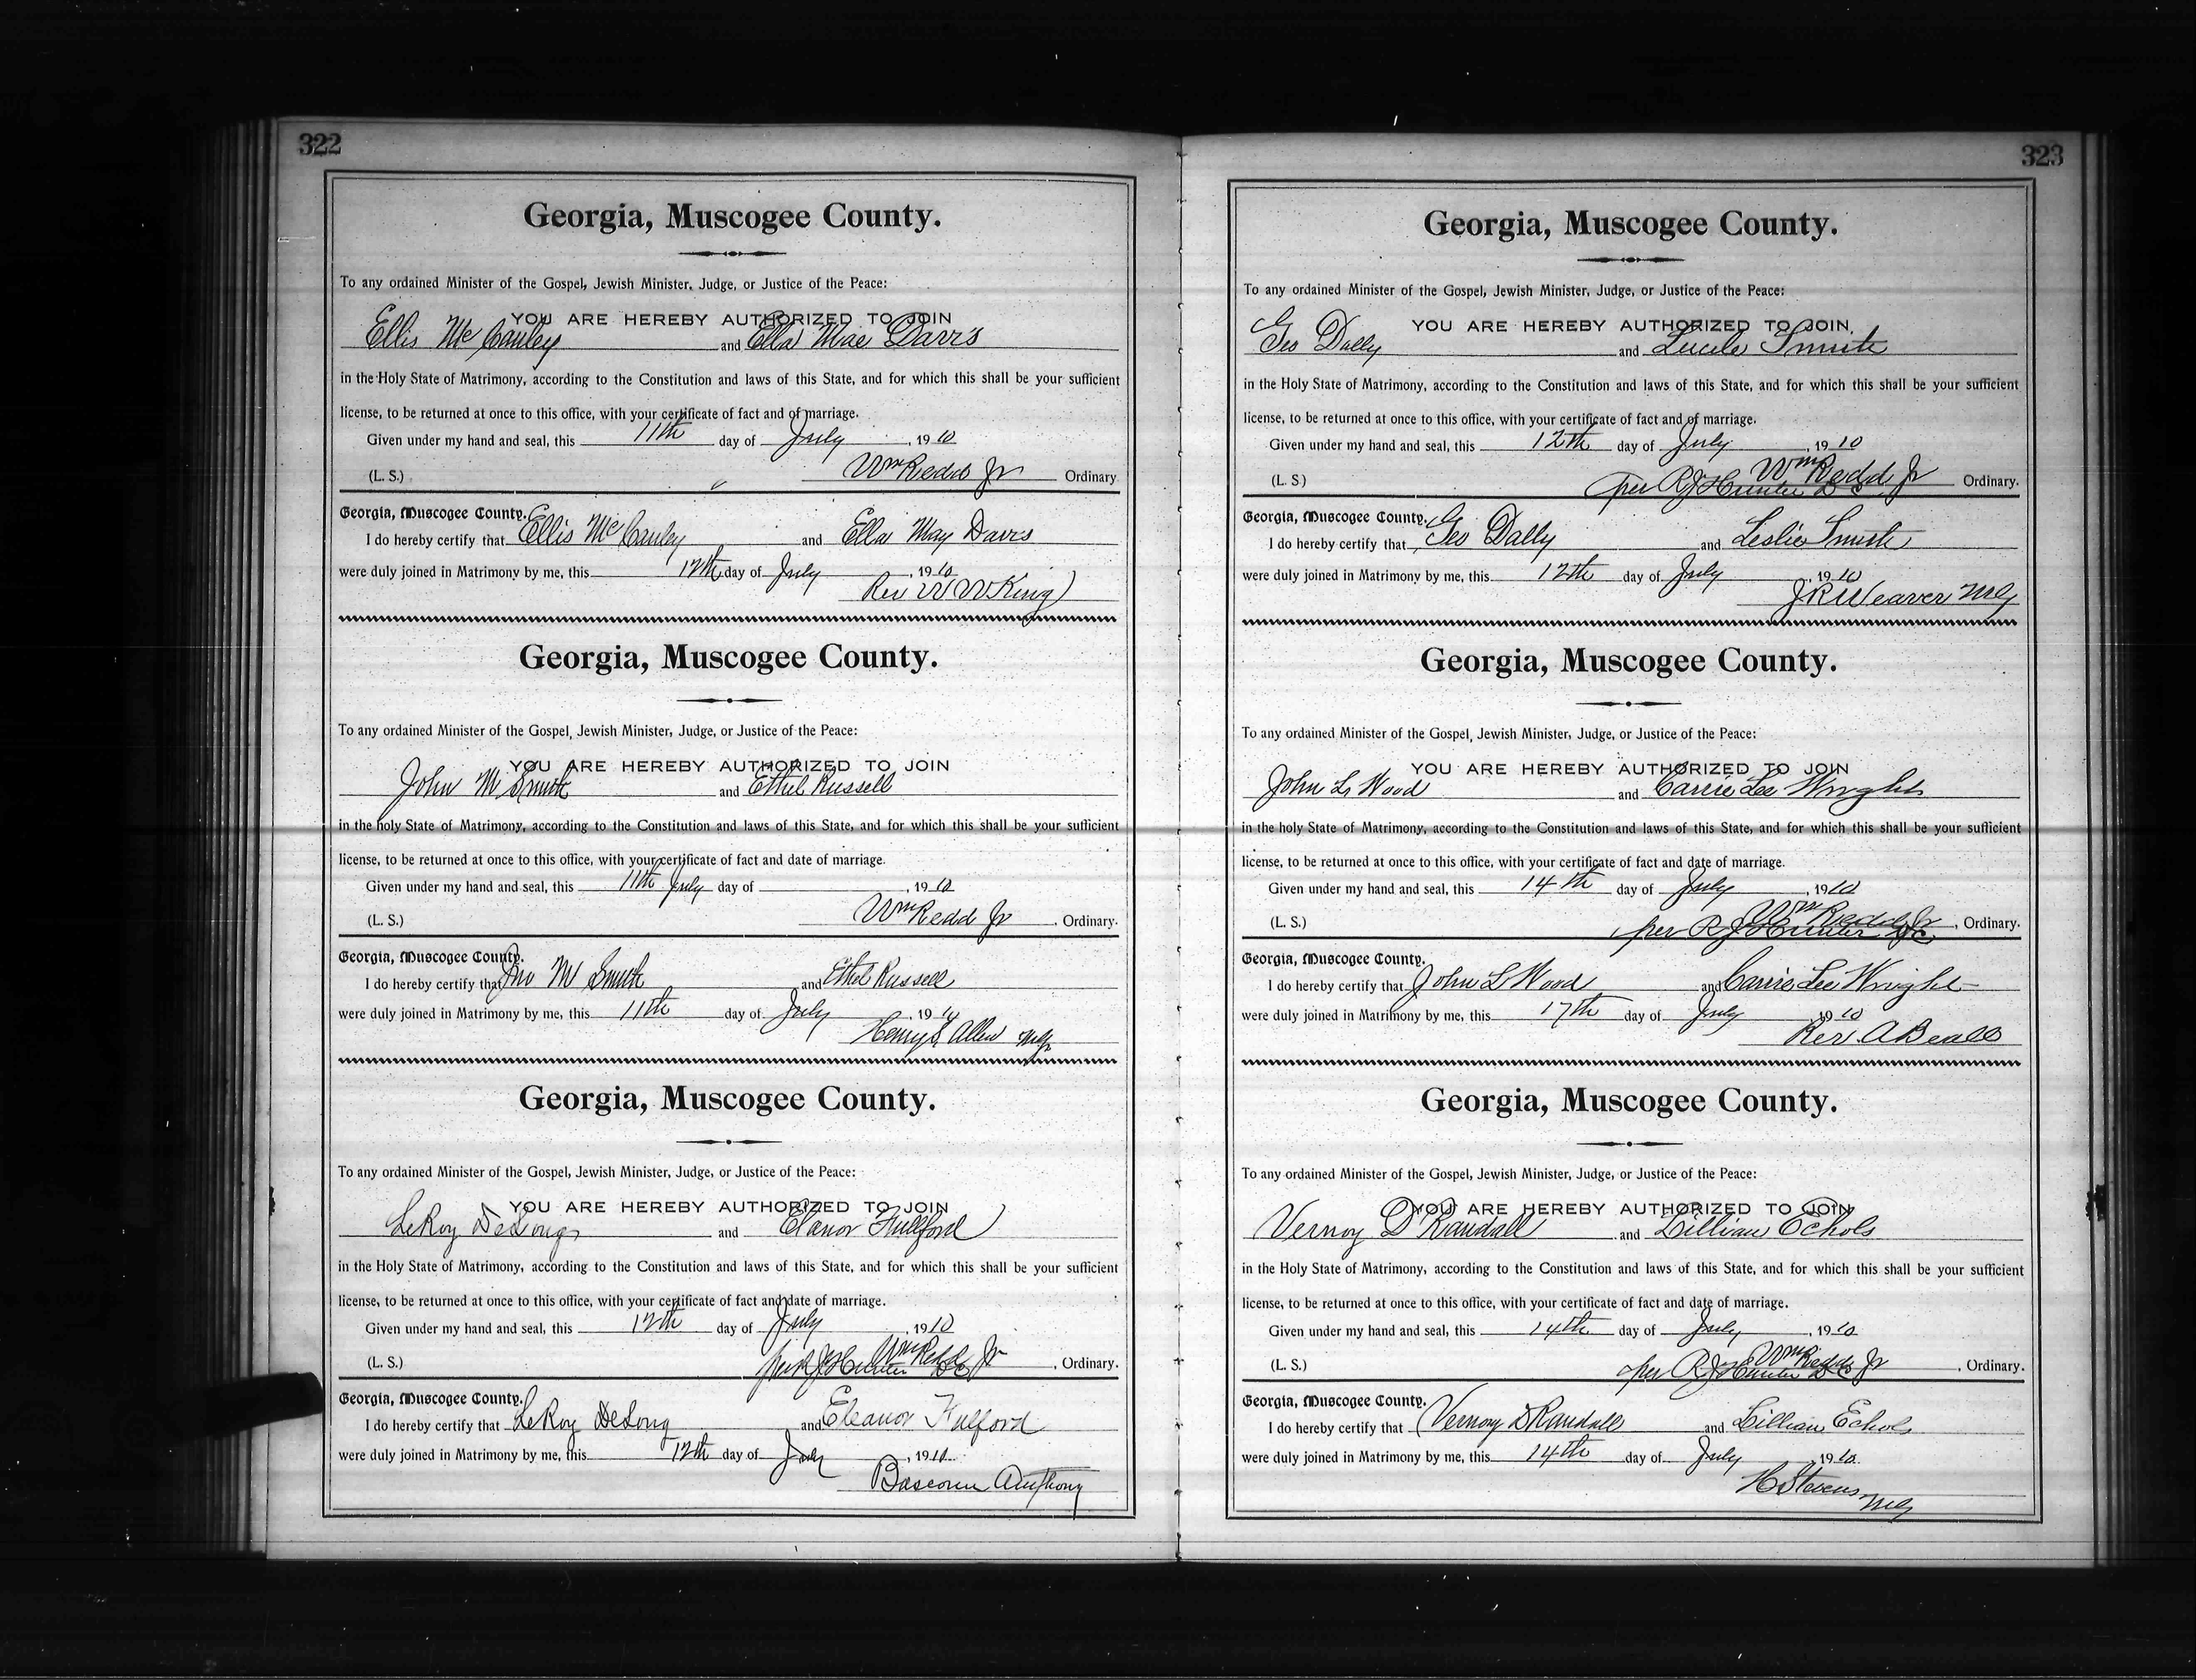 322
Georgia, Muscogee County.
To any ordained Minister of the Gospel, Jewish Minister, Judge, or Justice of the Peace:
YOU ARE HEREBY AUTHORIZED TO JOIN
Ellis McCauley and Ella Mae Davis
in the Holy State of Matrimony, according to the Constitution and laws of this State, and for which this shall be your sufficient
license, to be returned at once to this office, with your certificate of fact and of marriage.
Given under my hand and seal, this 11th day of July, 1910
(L. S.) Wm Redd Jr Ordinary
Georgia, Muscogee County.
I do hereby certify that Ellis McCauley and Ella May Davis
were duly joined in Matrimony by me, this 12th day of July, 1910
Rev W W King
Georgia, Muscogee County.
To any ordained Minister of the Gospel, Jewish Minister, Judge, or Justice of the Peace:
YOU ARE HEREBY AUTHORIZED TO JOIN
John M Smith and Ethel Russell
in the holy State of Matrimony, according to the Constitution and laws of this State, and for which this shall be your sufficient
license, to be returned at once to this office, with your certificate of fact and date of marriage.
Given under my hand and seal, this 11th July day of , 1910
(L. S.) Wm Redd Jr , Ordinary.
Georgia, Muscogee County.
I do hereby certify that Jno M Smith and Ethel Russell
were duly joined in Matrimony by me, this 11th day of July, 19
Henry S Allen MG
Georgia, Muscogee County.
To any ordained Minister of the Gospel, Jewish Minister, Judge, or Justice of the Peace:
YOU ARE HEREBY AUTHORIZED TO JOIN
LeRoy DeLong and Elanor Fullford
in the Holy State of Matrimony, according to the Constitution and laws of this State, and for which this shall be your sufficient
license, to be returned at once to this office, with your certificate of fact and date of marriage.
Given under my hand and seal, this 12th day of July, 1910
Wm Redd Jr
(L. S.) per R J Hunter D C , Ordinary.
Georgia, Muscogee County.
I do hereby certify that LeRoy DeLong and Eleanor Fulford
were duly joined in Matrimony by me, this 12th day of July, 1910
Bascom Anthony
323
Georgia, Muscogee County.
To any ordained Minister of the Gospel, Jewish Minister, Judge, or Justice of the Peace:
YOU ARE HEREBY AUTHORIZED TO JOIN,
Geo Dally and Lucile Smith
in the Holy State of Matrimony, according to the Constitution and laws of this State, and for which this shall be your sufficient
license, to be returned at once to this office, with your certificate of fact and of marriage.
Given under my hand and seal, this 12th day of July, 1910
Wm Redd Jr
(L. S) per R J Hunter D C Ordinary.
Georgia, Muscogee County.
I do hereby certify that Geo Dally and Leslie Smith
were duly joined in Matrimony by me, this 12th day of July, 1910
J R Weaver MG
Georgia, Muscogee County.
To any ordained Minister of the Gospel, Jewish Minister, Judge, or Justice of the Peace:
YOU ARE HEREBY AUTHORIZED TO JOIN
John L Wood and Carrie Lee Wright
in the holy State of Matrimony, according to the Constitution and laws of this State, and for which this shall be your sufficient
license, to be returned at once to this office, with your certificate of fact and date of marriage.
Given under my hand and seal, this 14th day of July, 1910
Wm Redd Jr
(L. S.) per R J Hunter D C , Ordinary.
Georgia, Muscogee County.
I do hereby certify that John L Wood and Carrie Lee Wright
were duly joined in Matrimony by me, this 17th day of July 1910
Rev. A Beall
Georgia, Muscogee County.
To any ordained Minister of the Gospel, Jewish Minister, Judge, or Justice of the Peace:
YOU ARE HEREBY AUTHORIZED TO JOIN
Vernoy D Randall and Lillian Echols
in the Holy State of Matrimony, according to the Constitution and laws of this State, and for which this shall be your sufficient
license, to be returned at once to this office, with your certificate of fact and date of marriage.
Given under my hand and seal, this 14th day of July, 1910
Wm Redd Jr
(L. S.) per R J Hunter D C , Ordinary.
Georgia, Muscogee County.
I do hereby certify that Vernoy D Randall and Lillian Echols
were duly joined in Matrimony by me, this 14th day of July, 1910
H Stevens
MG